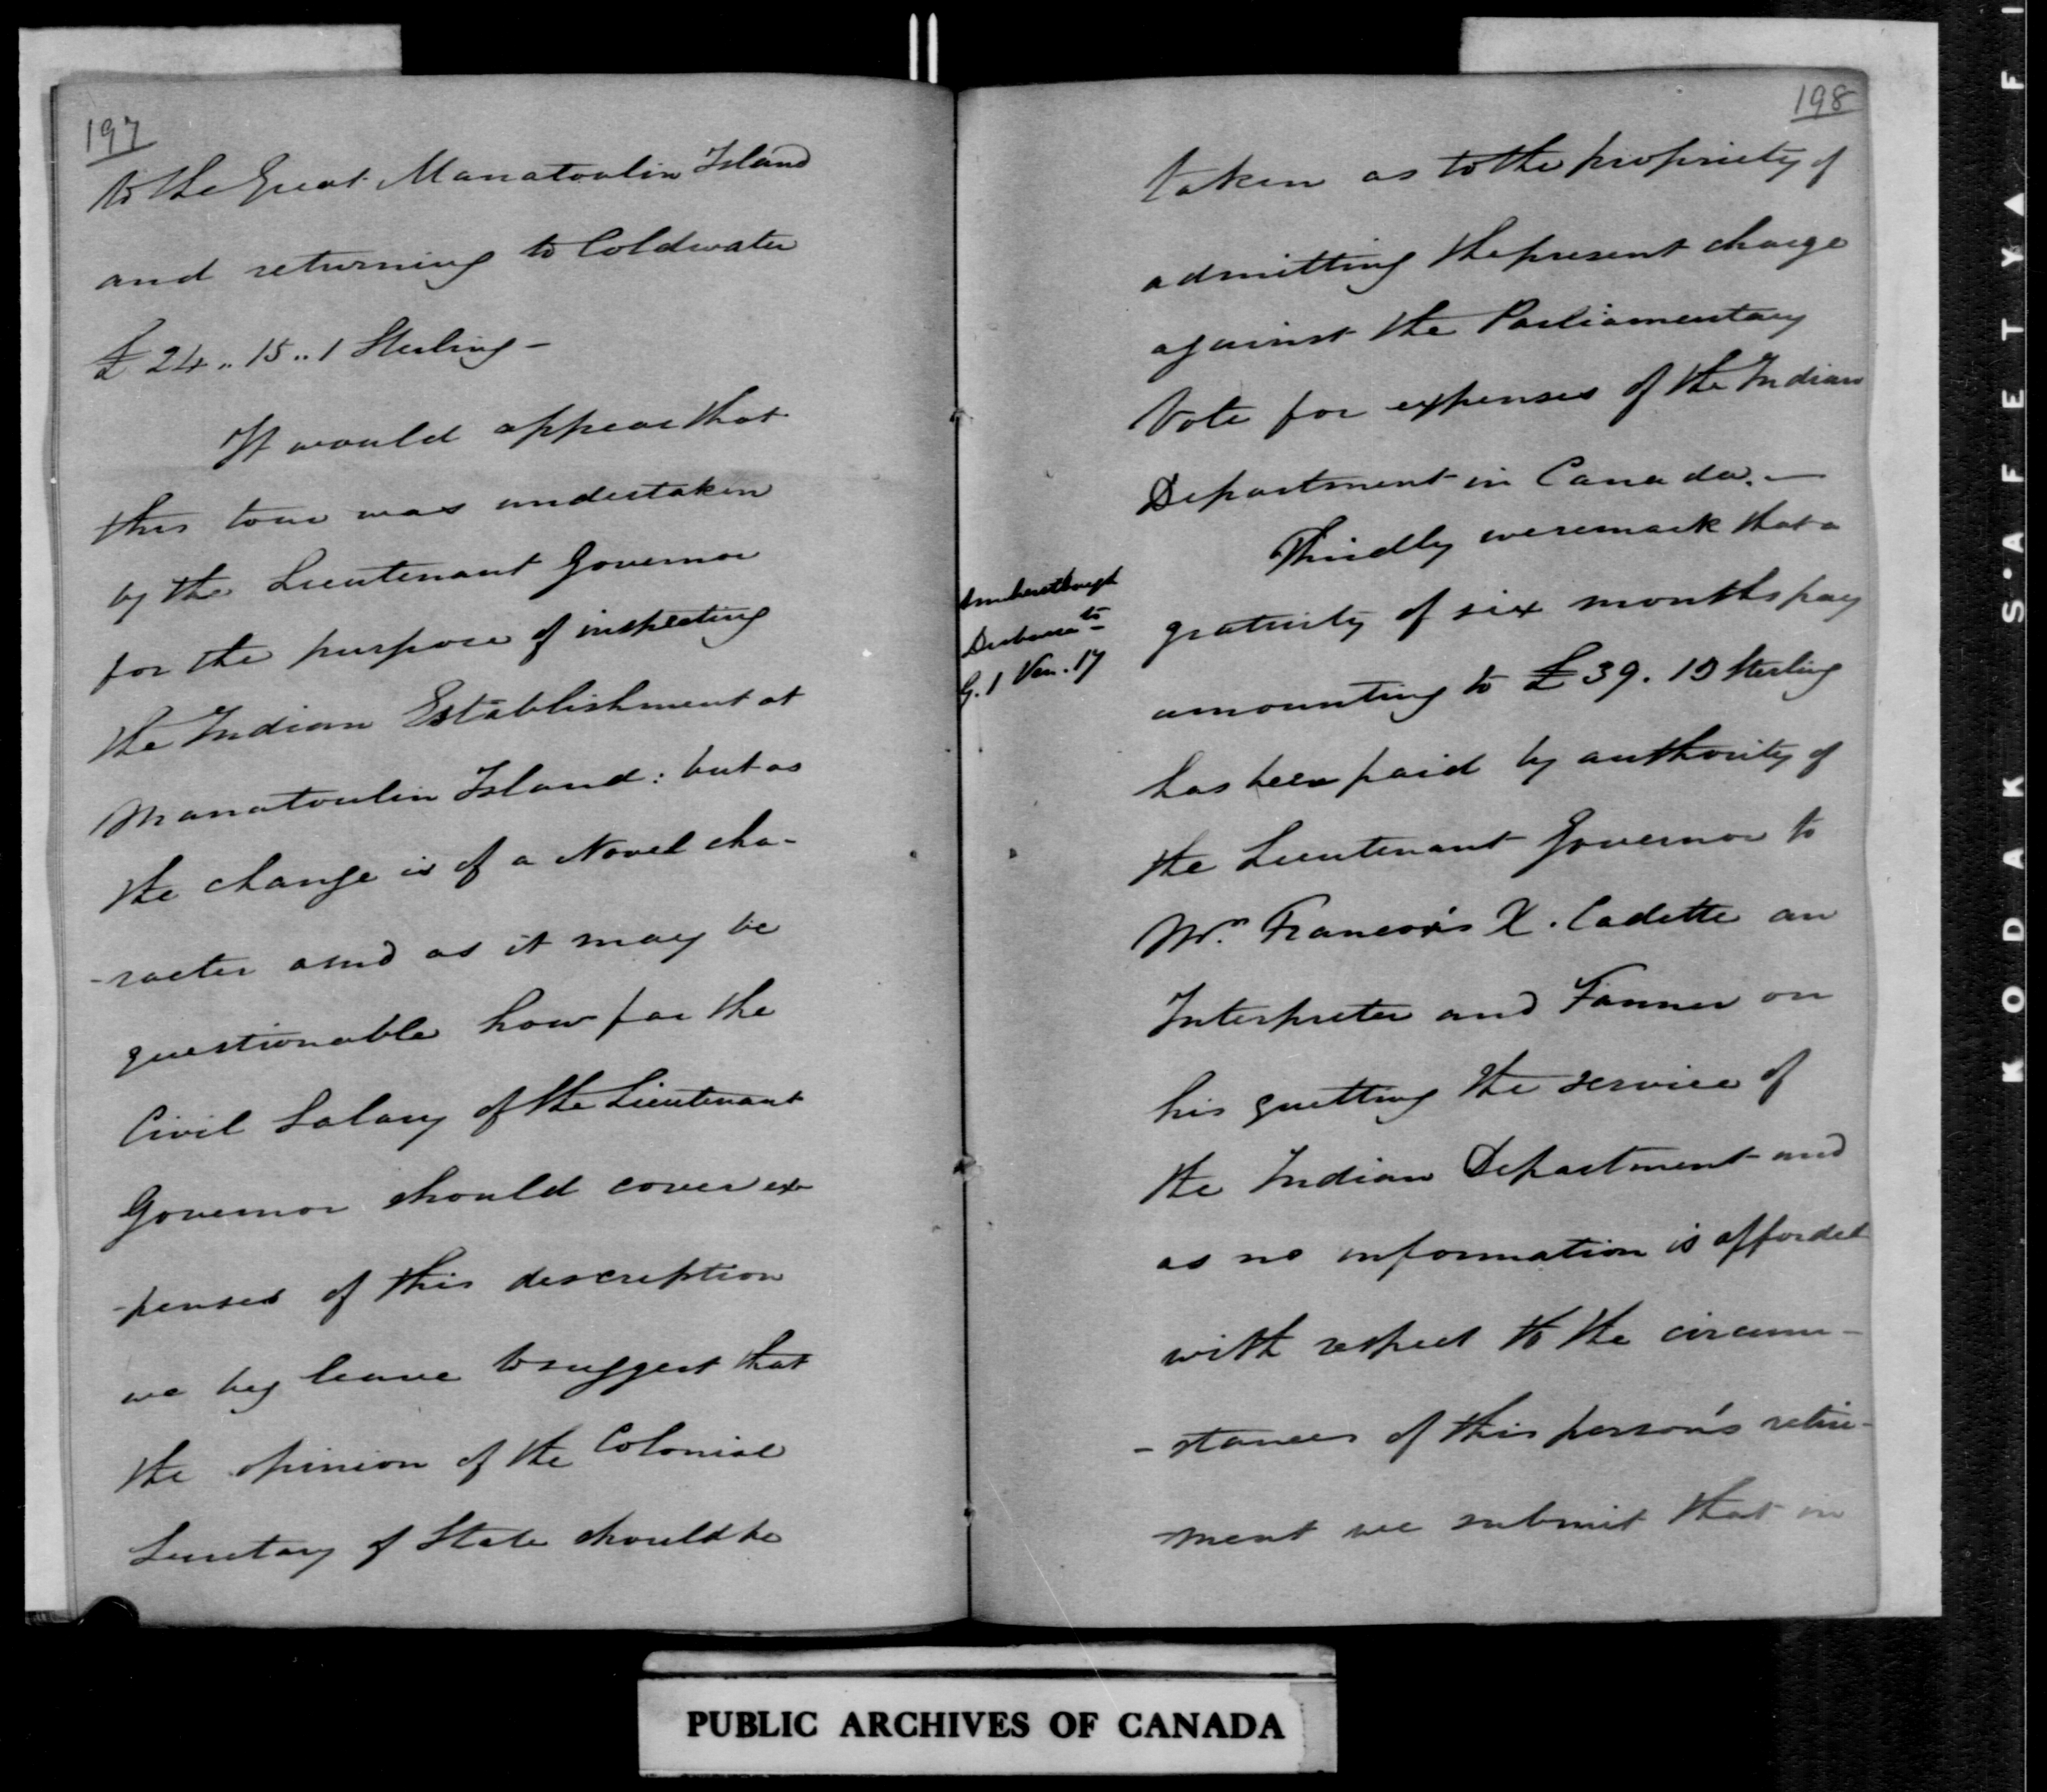 197
to the Great Manatoulin Island
and returning to Coldwater
£ 24 .. 15 .. 1 Sterling -
It would appear that
this tour was undertaken
by the Lieutenant Governor
for the purpose of inspecting
the Indian Establishment at
Manatoulin Island: but as
the change is of a Novel cha-
-racter and as it may be
questionable how far the
Civil Salary of the Lieutenant
Governor should cover ex-
-penses of this description
we beg leave to suggest that
the opinion of the Colonial
Secretary of State should be
198
taken as to the propriety of
admitting the present charge
against the Parliamentary
Vote for expenses of the Indian
Department in Canada. —
Thirdly we remark that a
Amherstburgh
gratuity of six months pay
G. 1 Vou. 17
amounting to £ 39. 15 Sterling
has been paid by authority of
the Lieutenant Governor to
Mr. Francois X. Cadette an
Interpreter and Farmer on
his quitting the service of
the Indian Department and
as no information is afforded
with respect to the circum-
-stances of this person's retire-
-ment we submit that in
PUBLIC ARCHIVES OF CANADA
KODAK S·AFETY▲FI